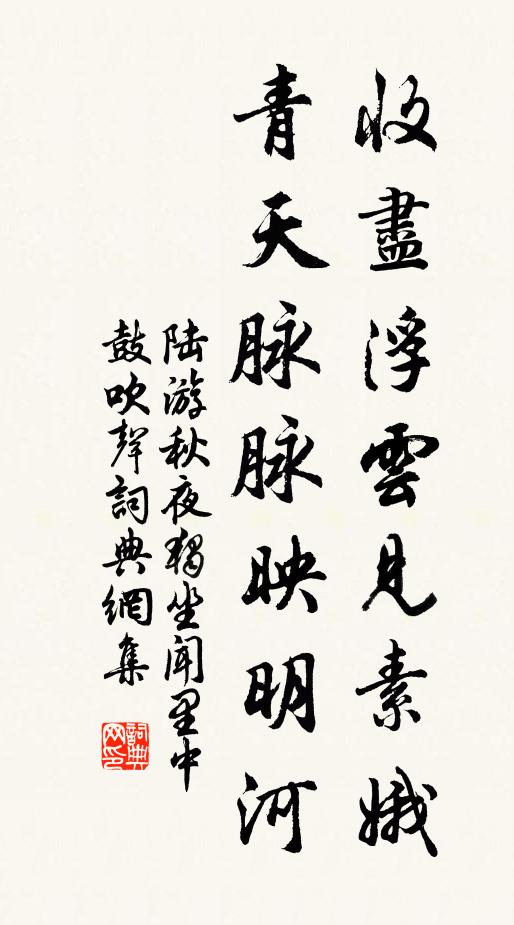 收盡浮雲見素娥
青天脉脉映明河
陆游秋夜獨坐闻里中
鼓吹聲詞典網集
詞典
网印